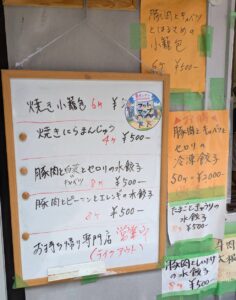 焼き小籠包 6ヶ
焼きにらまんじゅう
4ヶ ¥500-
豚肉と白菜とセロリの水餃子
8ヶ ¥500-
豚肉とピーマンとエレンギの水餃子
8ヶ ¥500-
お持ち帰り専門店 営業中
(テイクアウト)
豚肉とキャベツ
とはるさめの
小籠包
6ヶ ¥500-
豚肉とキャベツと
セロリの
冷凍餃子
50ヶ ¥2000-
たまごときゅうりの
水餃子
8ヶ ¥500-
豚肉としいたけ
の水餃子
8ヶ ¥500-
牛肉
大根